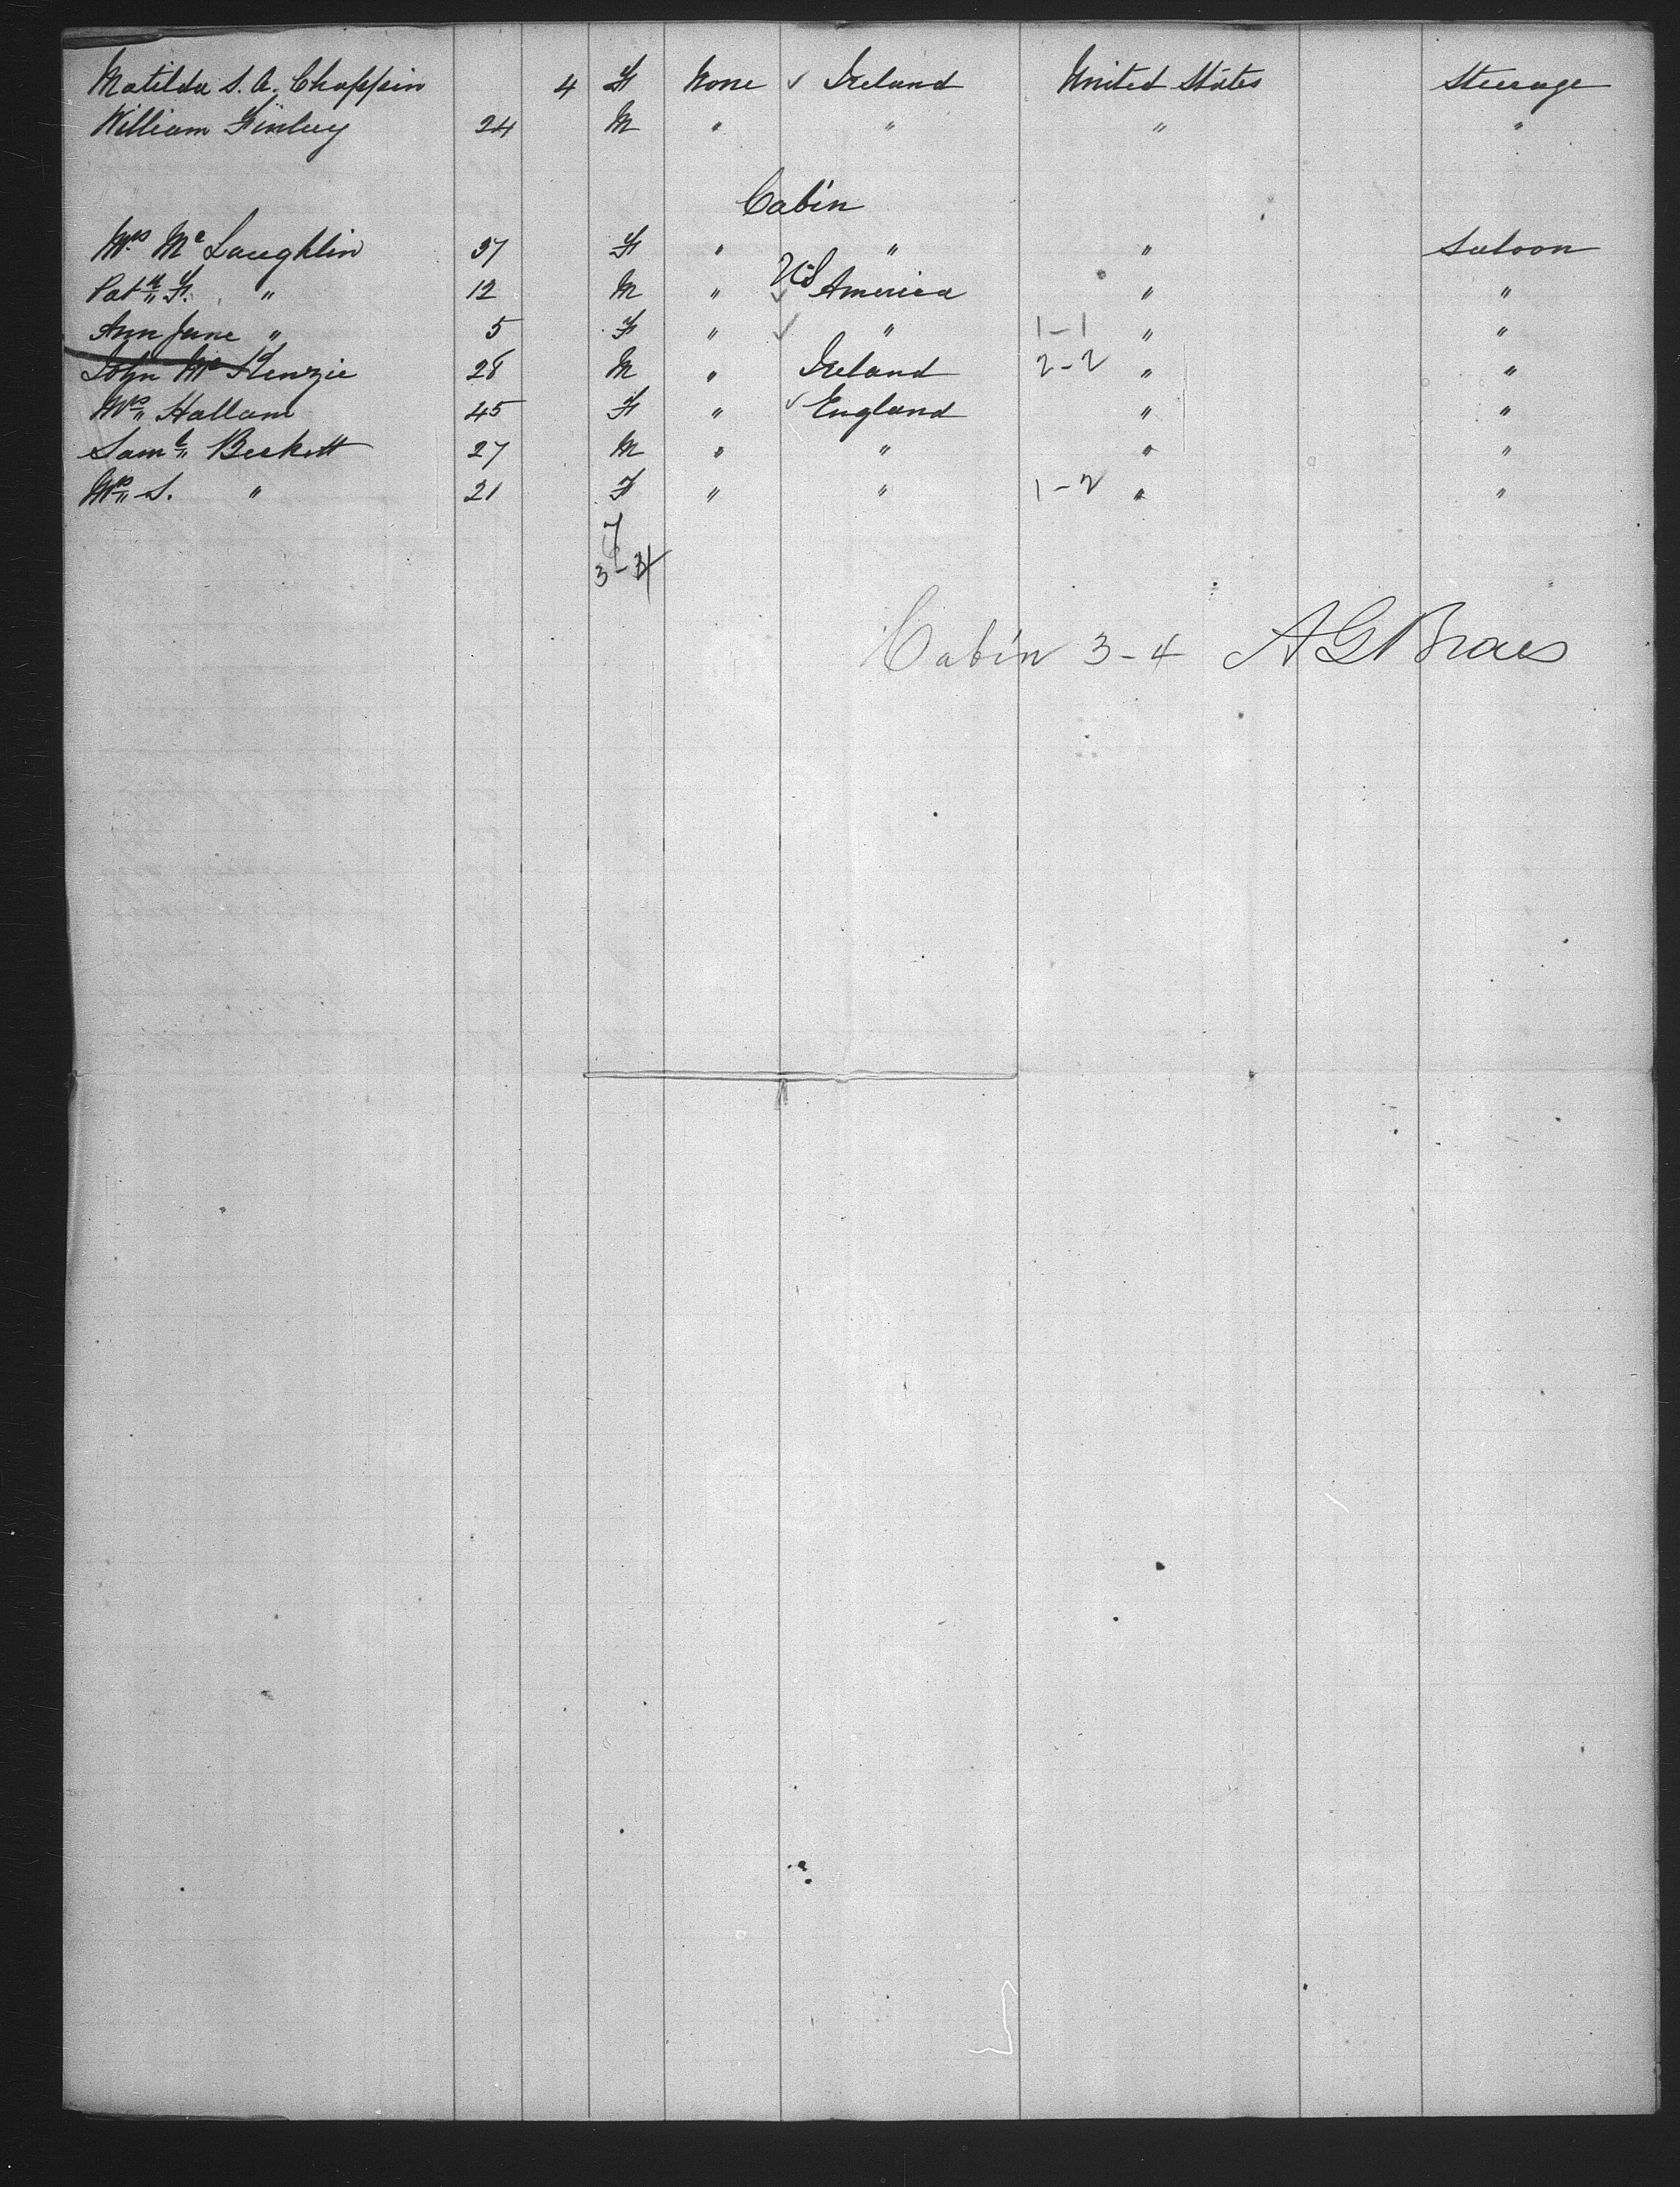 Matilda S. A. Chappin 4 F None ✓ Ireland United States Steerage
William Finlay 24 M " " " "
Cabin
Mrs Mc Laughlin 37 F " " " Saloon
Patk F. " 12 M " ✓ US America " "
Ann Jane " 5 F " ✓ " 1-1 " "
John Mc Kenzie 28 M " Ireland 2-2 " "
Mrs Hallam 45 F " ✓ England " "
Saml Beckett 27 M " " " "
Mrs S. " 21 F " " 1-2 " "
7
3-4
Cabin 3-4 A G Braes